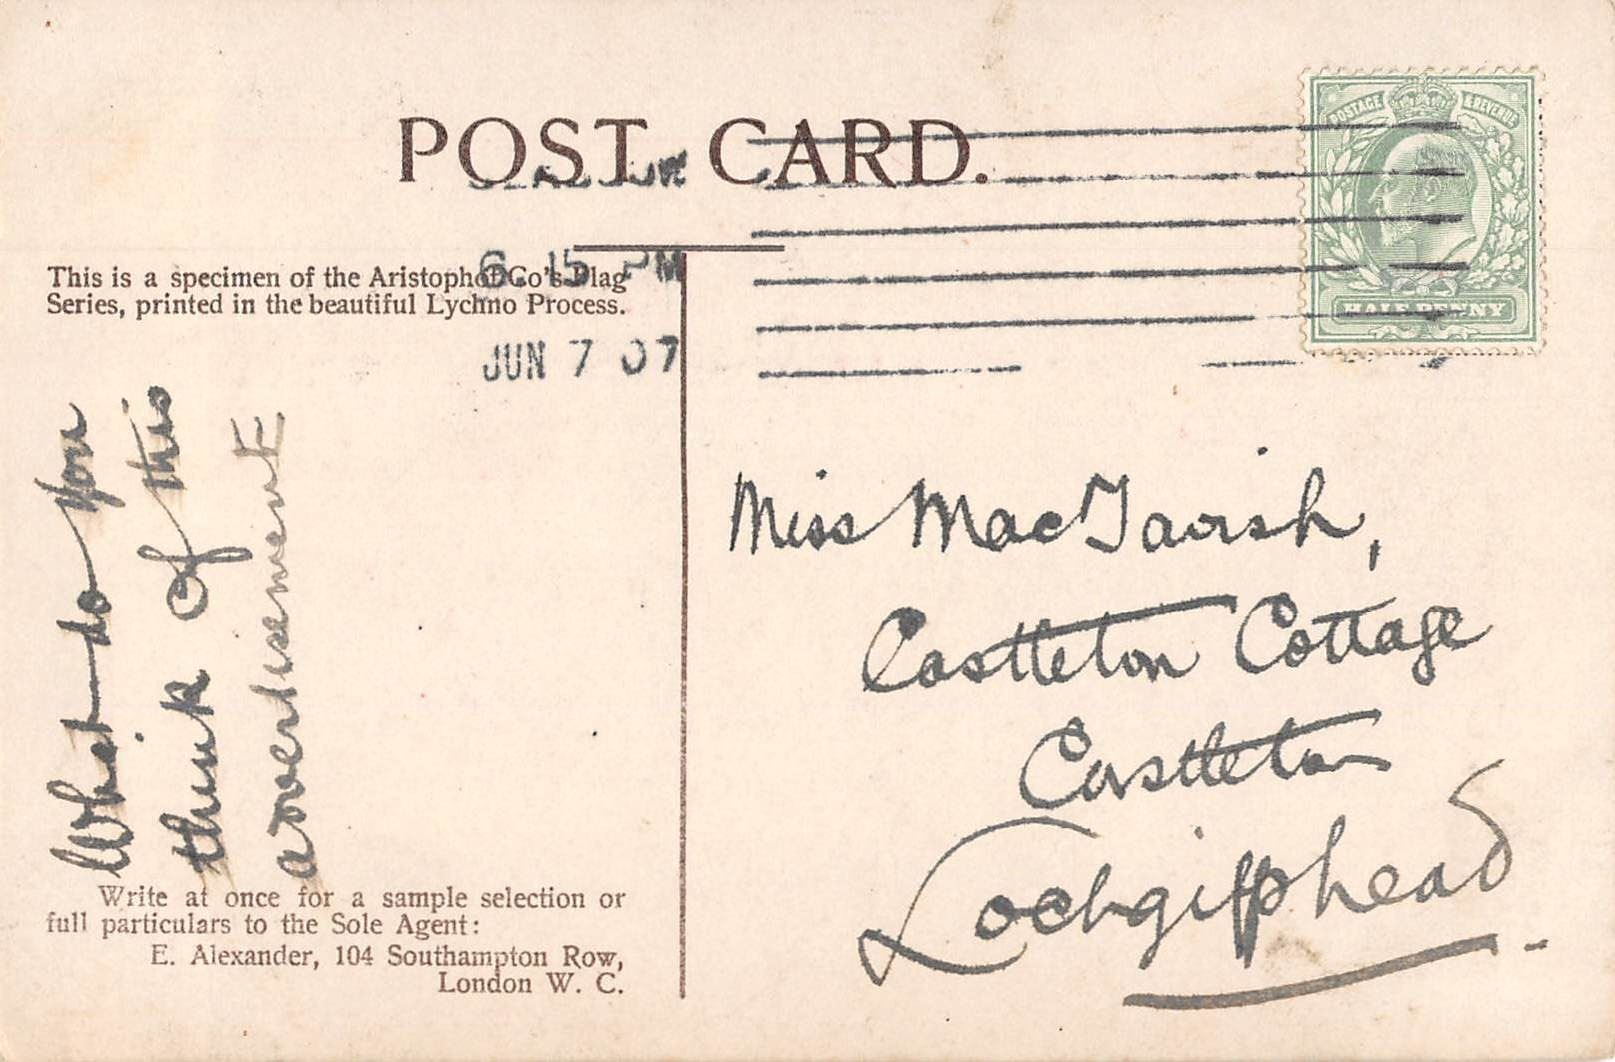 POST CARD.
POSTAGE & REVENUE
HALF PENNY
6. 15 PM
JUN 7 07
This is a specimen of the Aristophot Co's Flag
Series, printed in the beautiful Lychno Process.
What do you
think of this
advertisement
Write at once for a sample selection or
full particulars to the Sole Agent:
E. Alexander, 104 Southampton Row,
London W. C.
Miss MacTavish,
Castleton Cottage
Castleton
Lochgilphead